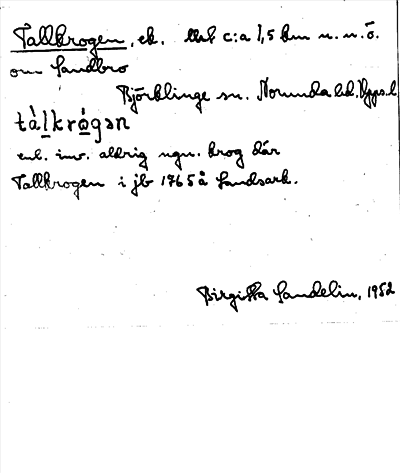 Tallkrogen, ek. Ekbl c:a 1,5 km n.n.ö.
om Sandbro
Björklinge sn. Norunda hd. Upps.l
tàlkrá̀gən
enl. inv. aldrig ngn. krog där
Tallkrogen i jb 1765 å Landsark.
Birgitta Sandelin, 1952